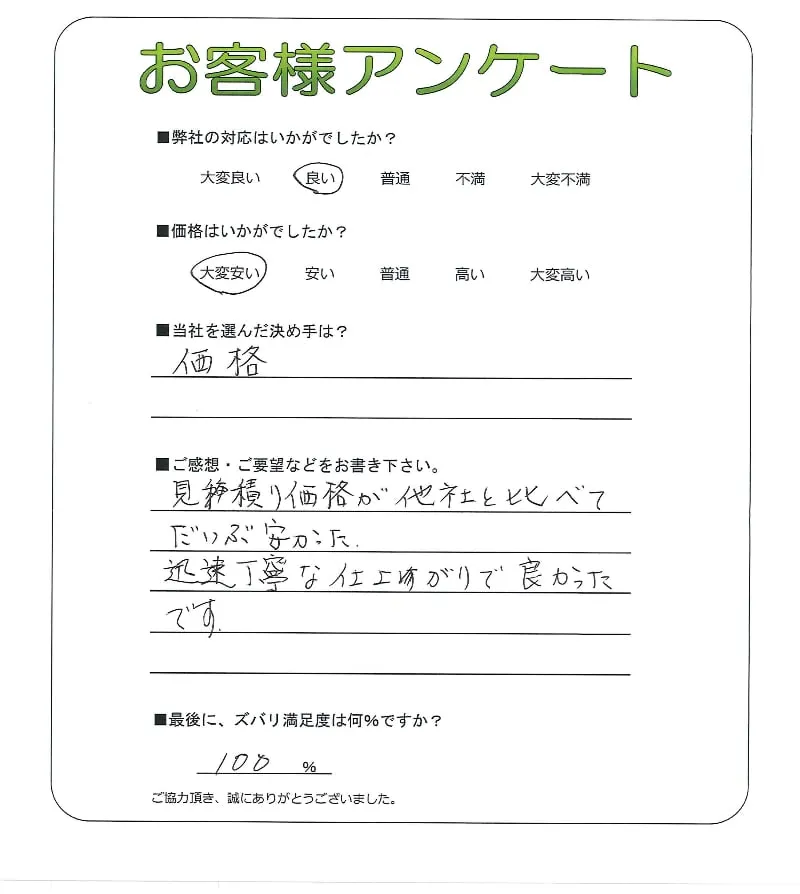 お客様アンケート
■弊社の対応はいかがでしたか？
大変良い 良い 普通 不満 大変不満
■価格はいかがでしたか？
大変安い 安い 普通 高い 大変高い
■当社を選んだ決め手は？
価格
■ご感想・ご要望などをお書き下さい。
見積り価格が他社と比べて
だいぶ安かった.
迅速丁寧な仕上がりで良かった
です.
■最後に、ズバリ満足度は何%ですか？
100 %
ご協力頂き、誠にありがとうございました。